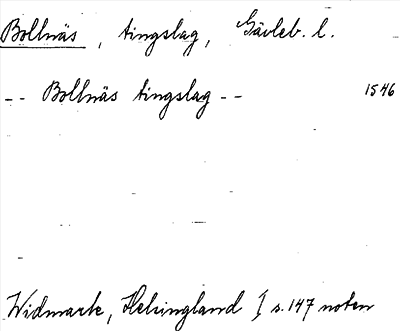 Bollnäs, tingslag, Gävleb. l.
-- Bollnäs tingslag -- 1546
Widmark, Helsingland I s. 147 noten